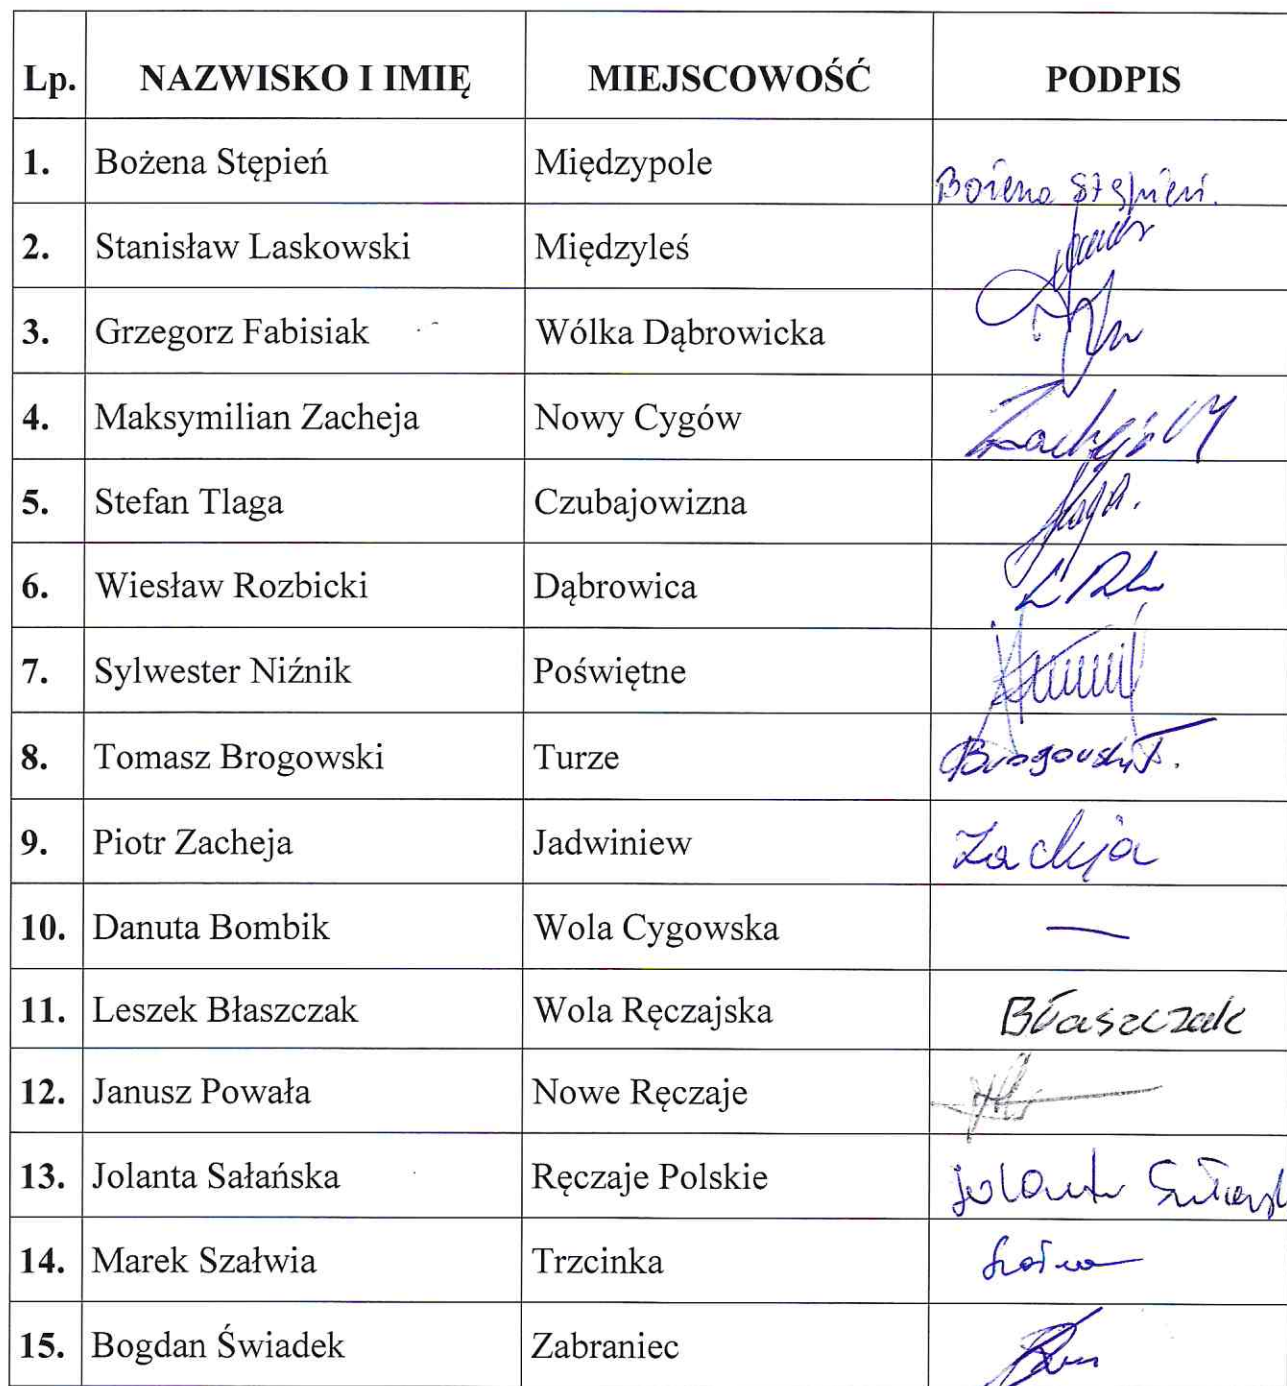 Lp. NAZWISKO I IMIĘ MIEJSCOWOŚĆ PODPIS
1. Bożena Stępień Międzypole Bożena Stępień.
2. Stanisław Laskowski Międzyleś
3. Grzegorz Fabisiak Wólka Dąbrowicka
4. Maksymilian Zacheja Nowy Cygów Zacheja M
5. Stefan Tlaga Czubajowizna
6. Wiesław Rozbicki Dąbrowica
7. Sylwester Niźnik Poświętne
8. Tomasz Brogowski Turze Brogowski T.
9. Piotr Zacheja Jadwiniew Zacheja
10. Danuta Bombik Wola Cygowska —
11. Leszek Błaszczak Wola Ręczajska Błaszczak
12. Janusz Powała Nowe Ręczaje
13. Jolanta Sałańska Ręczaje Polskie Jolanta
14. Marek Szałwia Trzcinka
15. Bogdan Świadek Zabraniec